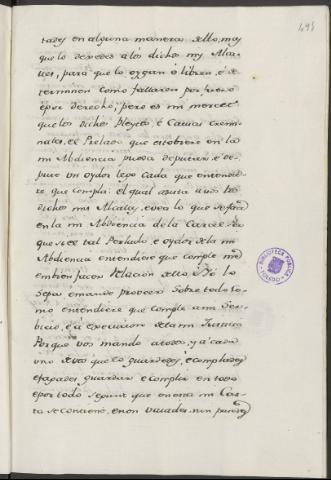 495
tades en alguna manera dello, mas
que lo dexedes a los dichos mis Alca-
lles, para que lo oygan o libren, é de-
terminen como fallaren por fuero
é por derecho; pero es mi merced
que los dichos Pleytos, é Causas Cremi-
nales, el Prelado que estobiere en la
mi Abdiencia pueda deputar, é de-
pute un oydor lego cada que entendie-
re que cumple el qual asista á vos los
dichos mis Alcalles, é vea lo que se fara
en la mi Abdiencia de la Carcel, é
que si el tal Perlado, é oydor de la mi
Abdiencia entendiere que comple me
embien facer Relacion dello é Yó lo
Sepa e mande proveer Sobre todo co-
mo entendiere que comple a mi Ser-
bicio, é a execucion de la mi Justicia
Por que vos mando a todos, y á cada
uno de vos que lo guardedes, é complades
é fagades guardar é complir en todo
é por todo segunt que en esta mi Car-
ta se contiene, é non vaiades, nin pasedes
BIBLIOTECA PUBLICA
TOLEDO